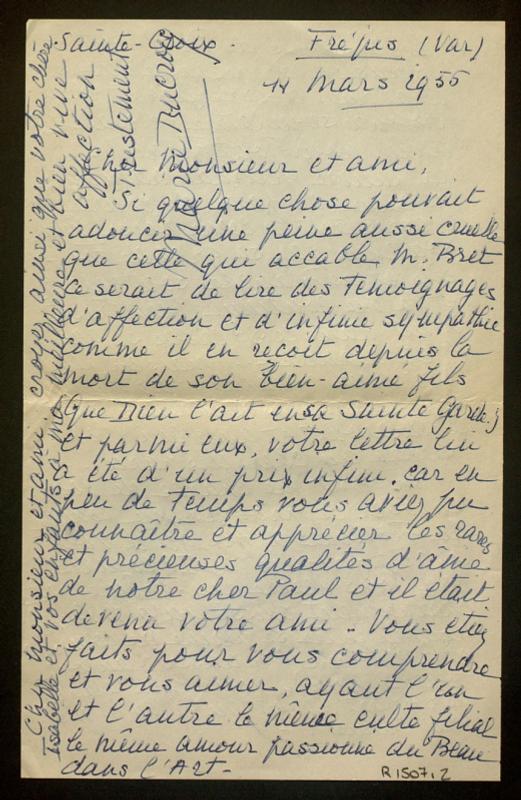 Sainte-Croix.
Fréjus (Var)
14 Mars 1955
Cher Monsieur et ami,
Si quelque chose pouvait
adoucir une peine aussi cruelle
que cette qui accable M. Bret
ce serait de lire des témoignages
d'affection et d'infinie sympathie
comme il en reçoit depuis la
mort de son bien-aimé fils
(que Dieu l'ait en sa Sainte Garde.)
Et parmi eux, votre lettre lui
a été d'un prix infini, car en
peu de temps vous avez pu
connaître et apprécier les rares
et précieuses qualités d'âme
de notre cher Paul et il était
devenu votre ami. Vous étiez
faits pour vous comprendre
et vous aimer, ayant l'un
et l'autre le même culte filial
le même amour passionné du Beau
dans l'Art-
Cher Monsieur et ami, croyez, ainsi que votre chère
Isabelle et vos enfants à ma meilleure et bien vive
affection
Tristement
R 1507.2